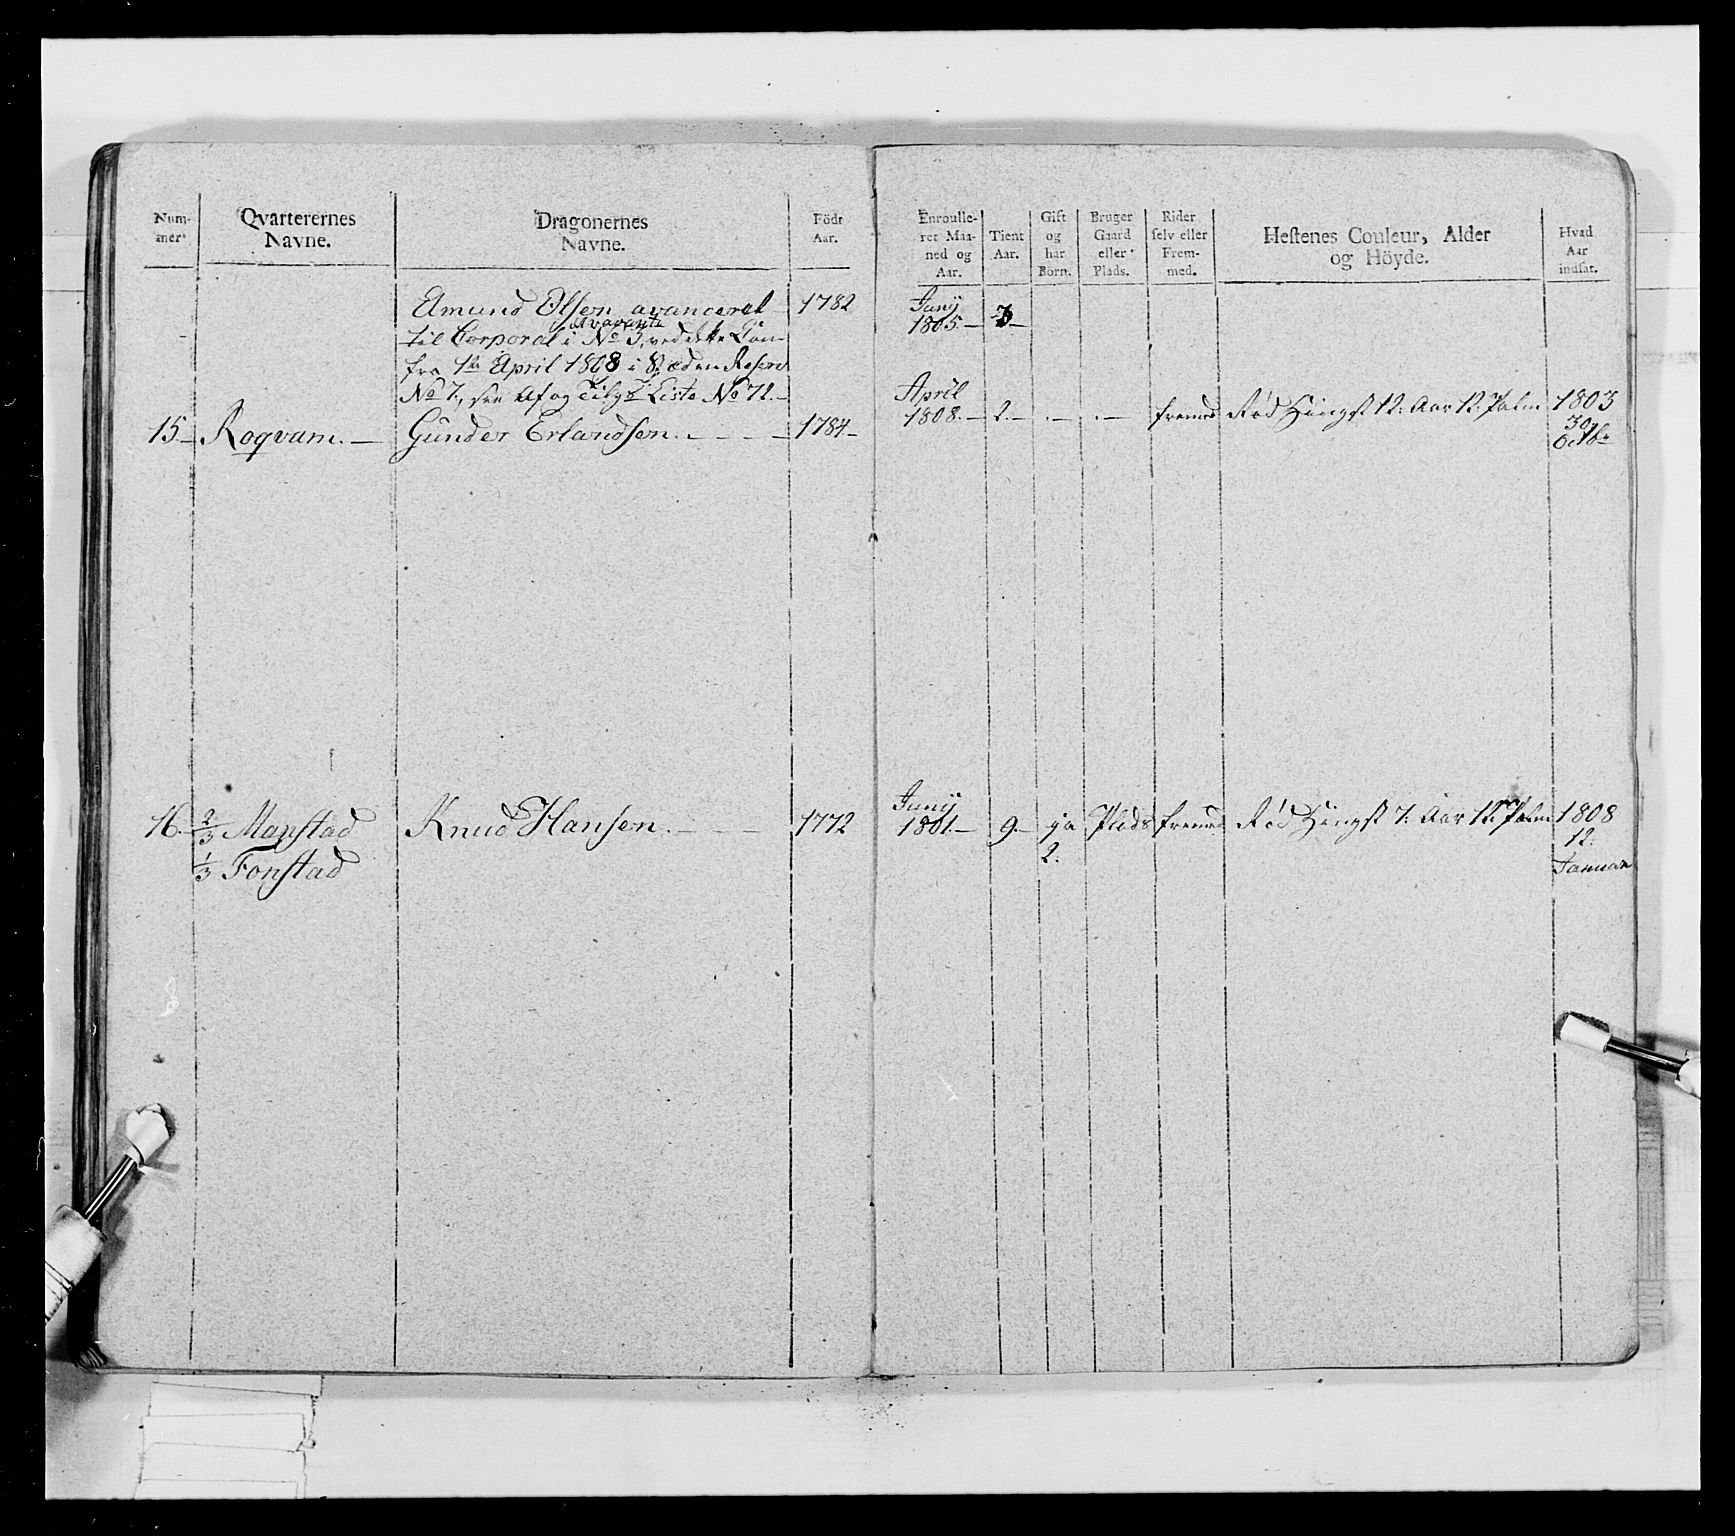 Num-
mer
Qvarterernes
Navne.
Dragonernes
Navne.
Födt
Aar.
Enroulle-
ret Maa-
ned og
Aar.
Tient
Aar.
Gift
og
har
Börn.
Bruger
Gaard
eller
Plads.
Rider
selv eller
Frem-
med.
Hestenes Couleur, Alder
og Höyde.
Hvad
Aar
indsat.
Amund Olsen avanceret 1782 Junij
1805. 3
til Corporal i No 3, ved dette
fra 1te April 1808 i
No 7, see Af og Tilgs Liste No 72.
15. Roqvam. Gunder Erlandsen. 1784 April
1808. 2. fremed Rød Hingst 12. Aar 12. Palm 1803
30
Octbr
16. 2/3 Manstad Knud Hansen. 1772 Junij
1801. 9. ja Plads fremed Rød Hingst 7. Aar 12. Palm 1808
1/3 Fonstad 2. 12.
Januar